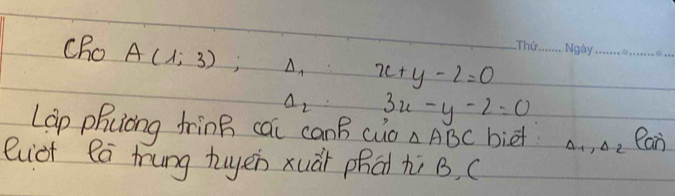 Thứ....... Ngày.......
Cho A(1; 3) ; Δ₁ : x + y - 2 = 0
Δ₂ : 3x - y - 2 = 0
Lập phương trình các cạnh của Δ ABC biết : Δ₁, Δ₂ lần
lượt là trung tuyến xuất phát từ B, C